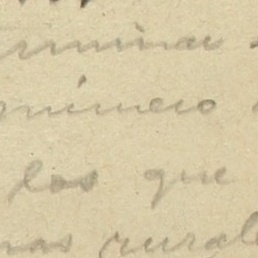 erminar
número
los que
nas rurale